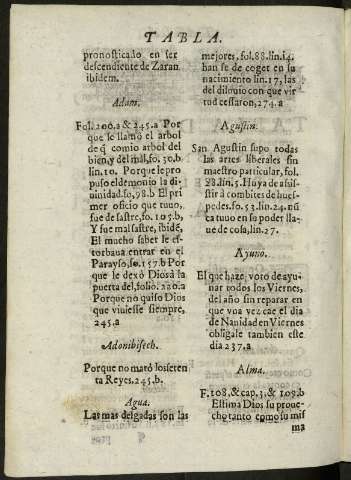 TABLA.
pronosticado en ser
descendiente de Zaran.
ibidem.
Adam.
Fol. 200. a & 245. a Por
que le llamò el arbol
de q̃ comio arbol del
bien, y del mal, fo. 30. b.
lin. 10. Porque le pro
puso el demonio la di-
uinidad. fo, 98. b El pri
mer oficio que tuuo,
fue de sastre, fo. 105. b,
Y fue mal sastre, ibidē,
El mucho saber le es-
torbaua entrar en el
Parayso, fo. 157. b Por
que le dexò Dios à la
puerta del, folio. 220. a
Porque no quiso Dios
que viuiesse siempre,
245. a
Adonibisech.
Porque no matò los seten
ta Reyes. 245. b.
Agua.
Las mas delgadas son las
mejores, fol. 88. lin. 14.
han se de coger en su
nacimiento lin. 17, las
del diluuio con que vir
tud cessaron, 274. a
Agustin.
San Agustin supo todas
las artes liberales sin
maestro particular, fol.
28. lin. 5. Huya de assis-
tir à combites de hues-
pedes. fo. 53. lin. 24. nũ
ca tuuo en su poder lla-
ue de cosa, lin. 27.
Ayuno.
El que haze voto de ayu-
nar todos los Viernes,
del año sin reparar en
que vna vez cae el dia
de Nauidad en Viernes
obligale tambien este
dia 237. a
Alma.
F. 108. & cap. 3. & 109. b
Estima Dios su proue-
cho tanto como su mis
ma